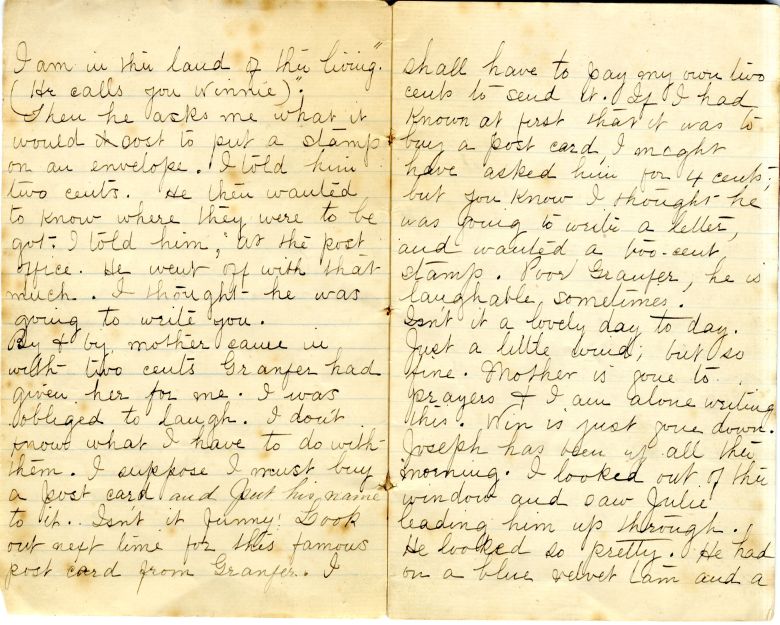 I am in the land of the living."
(He calls you Winnie).
Then he asks me what it
would cost to put a stamp
on an envelope. I told him
two cents. He then wanted
to know where they were to be
got. I told him, "at the post
office. He went off with that
much. I thought he was
going to write you.
By & by, mother came in
with two cents Granfer had
given her for me. I was
obliged to laugh. I don't
know what I have to do with
them. I suppose I must buy
a post card and put his name
to it. Isn't it funny! Look
out next time for this famous
post card from Granfer. I
shall have to pay my own two
cents to send it. If I had
known at first that it was to
buy a post card I might
have asked him for 4 cents;
but you know I thought he
was going to write a letter,
and wanted a two-cent
stamp. Poor Granfer, he is
laughable, sometimes.
Isn't it a lovely day to day.
Just a little wind; but so
fine. Mother is gone to
prayers & I am alone writing
this. Win is just gone down.
Joseph has been up all the
morning. I looked out of the
window and saw Julie
leading him up through.
He looked so pretty. He had
on a blue velvet tam and a